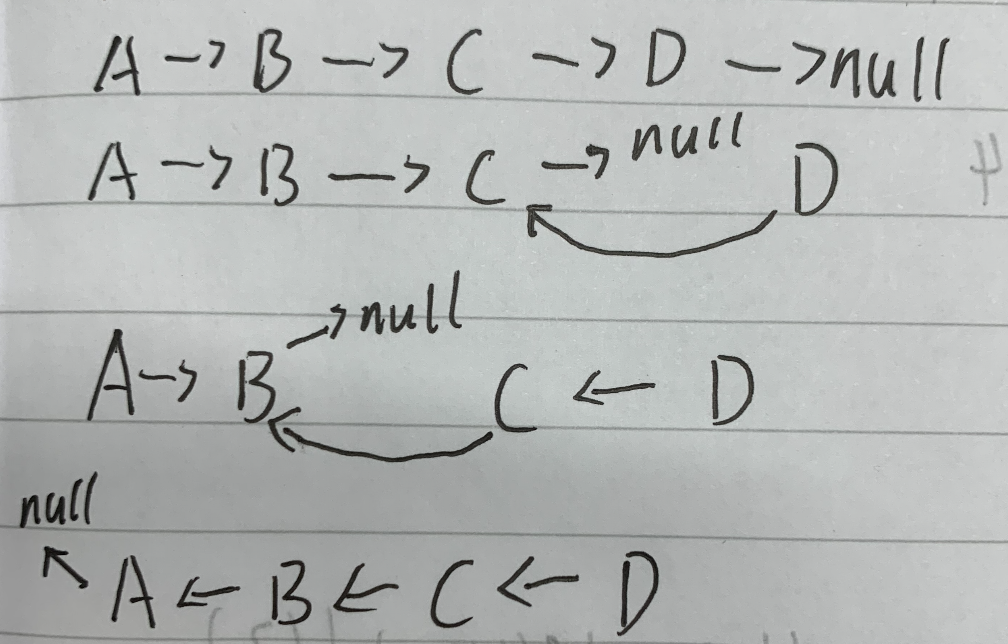 A → B → C → D → null
A → B → C → null D
null
A → B C ← D
null
A ← B ← C ← D